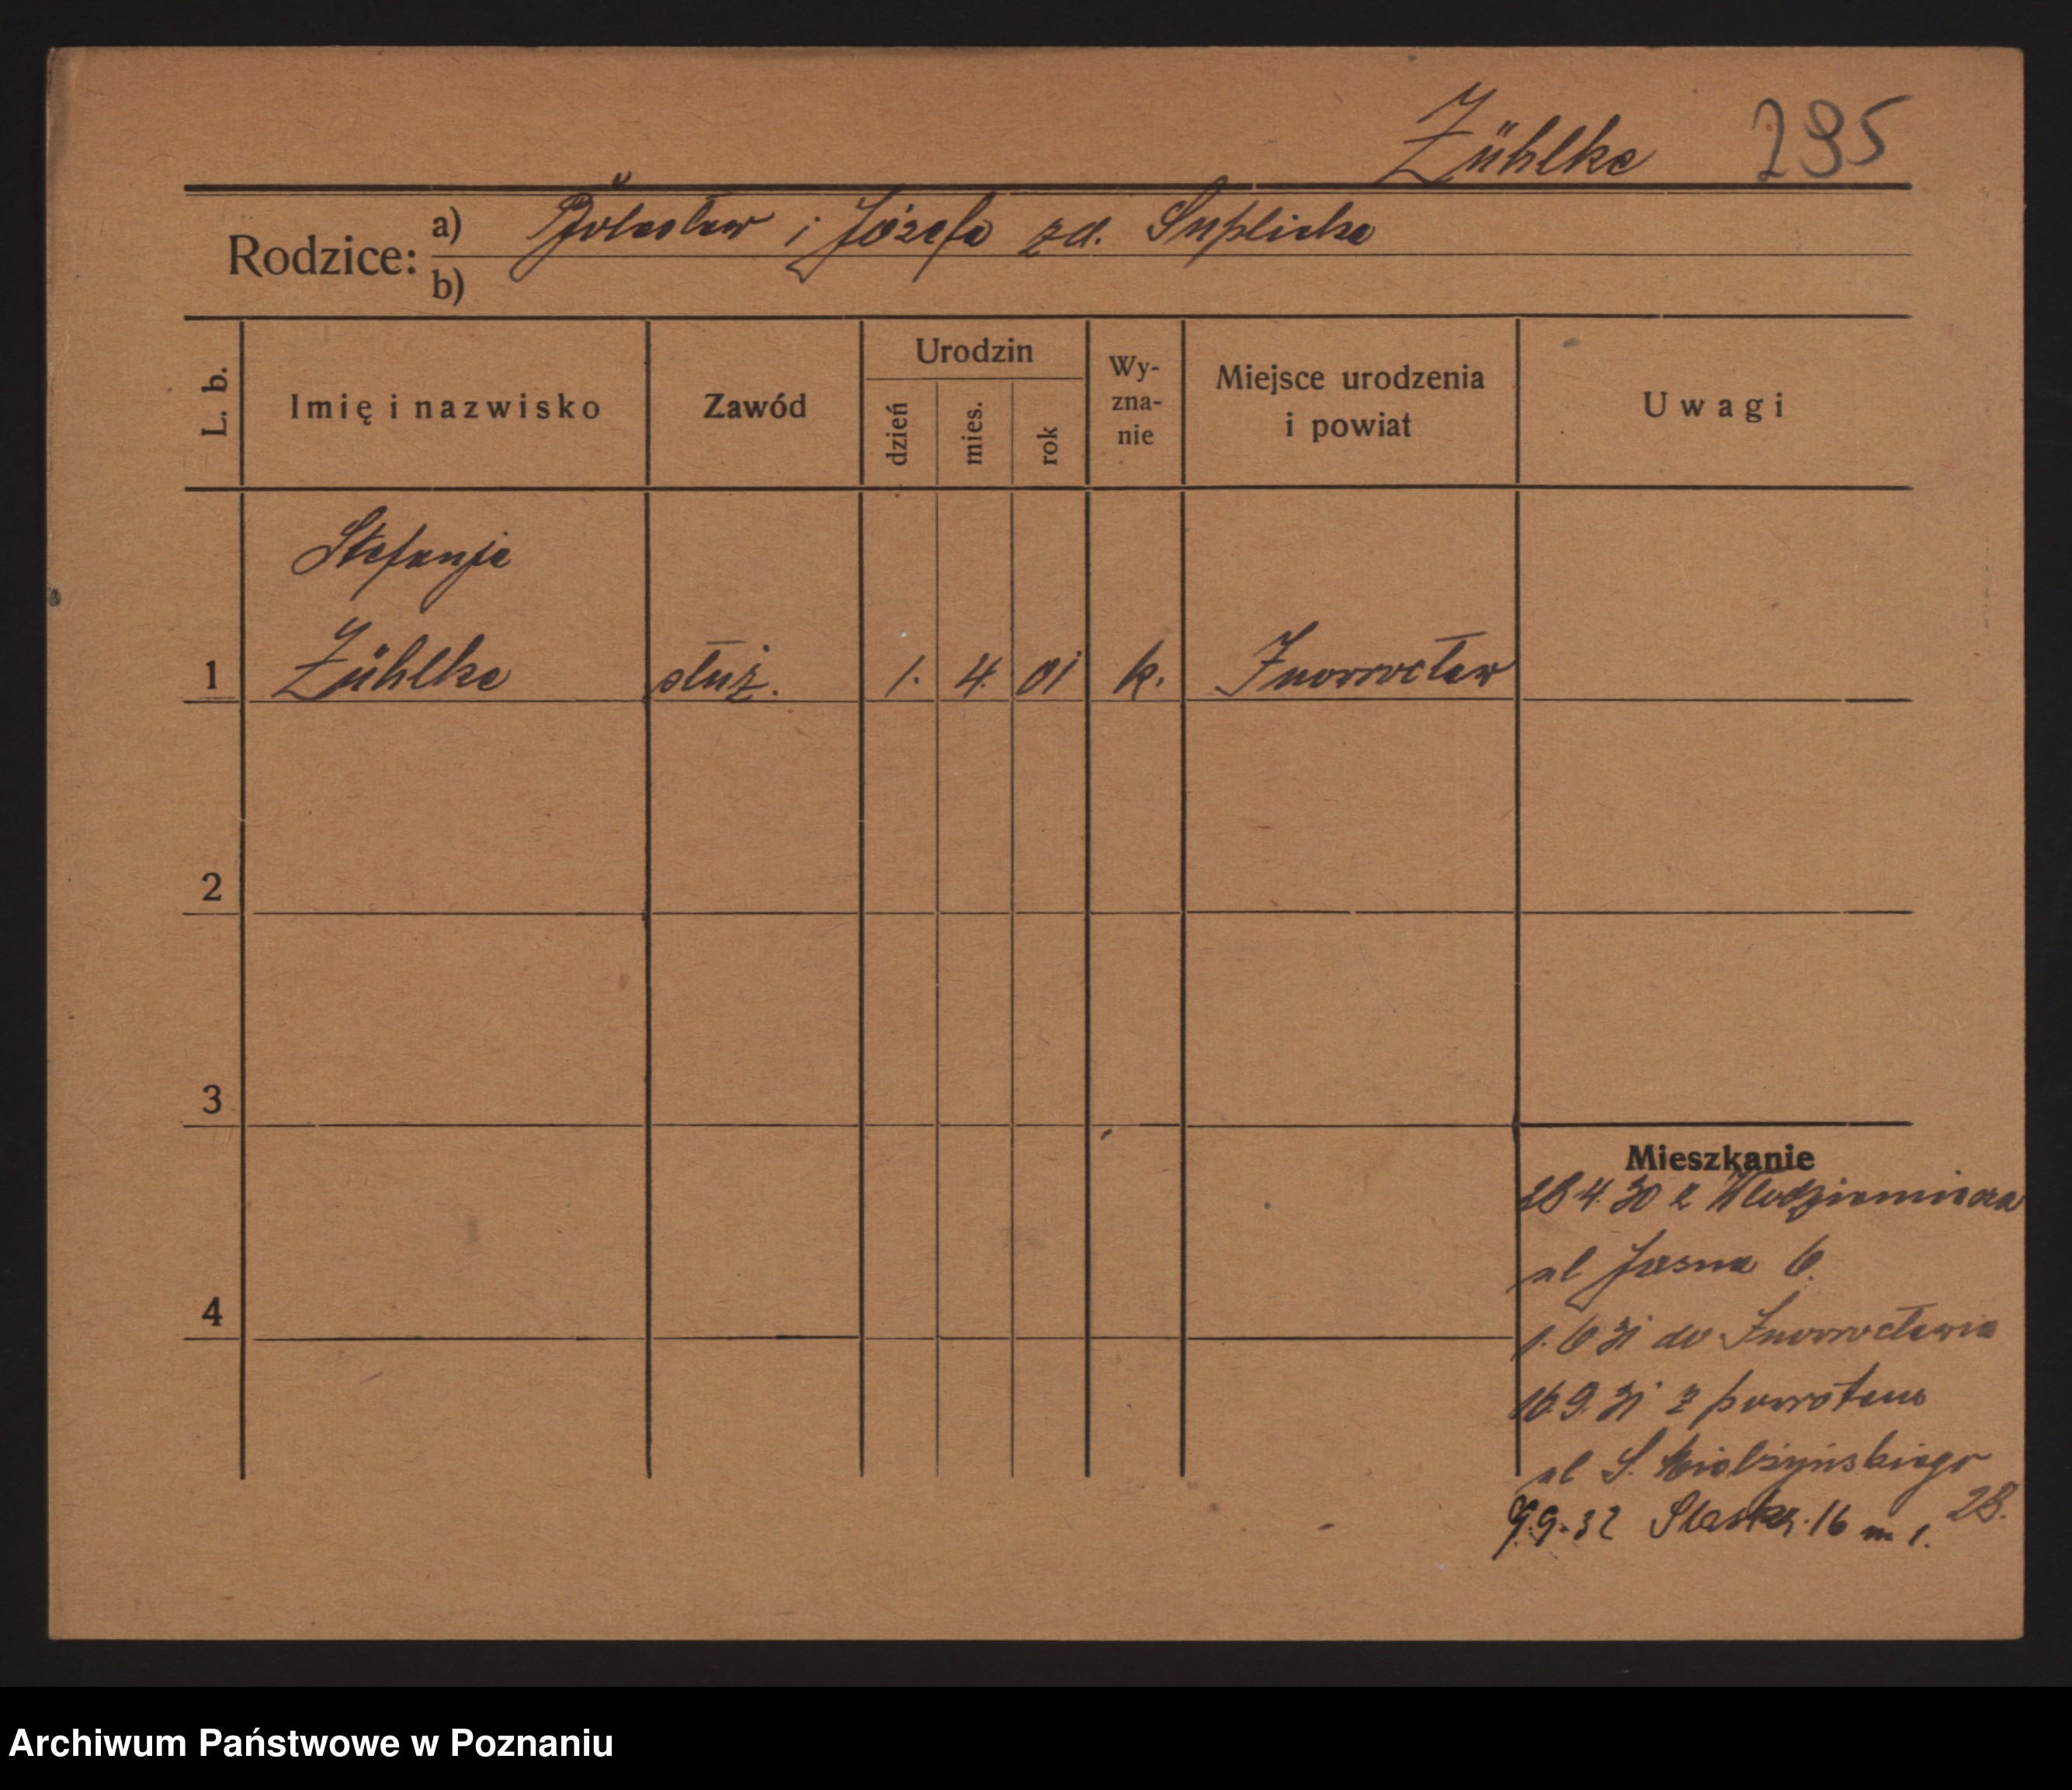 Zühlke 295
Rodzice: a) Bolesław i Józefa zd. Suplicka
b)
L. b. Imię i nazwisko Zawód Urodzin dzień mies. rok Wy-zna-nie Miejsce urodzenia i powiat Uwagi
Stefanja
1 Zühlke służ. 1. 4. 01 k. Inowrocław
2
3
Mieszkanie
28 4. 30 z Włodzimierza
ul Jasna 6.
4
1. 6 31 do Inowrocławia
16 9. 31 z powrotem
ul S. Mielżyńskiego
28.
9.9.32 16 m 1.
Archiwum Państwowe w Poznaniu